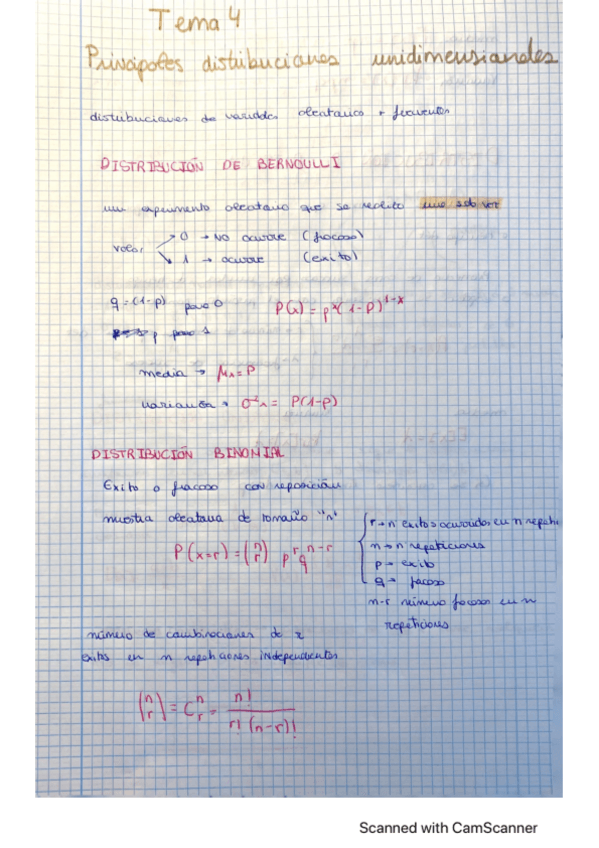 Tema 4
Principales distribuciones unidimensionales
distribuciones de variables aleatorias + frecuentes
DISTRIBUCIÓN DE BERNOULLI
un experimento aleatorio que se realiza una sola vez
valor → 0 → No ocurre (fracaso)
↘ 1 → ocurre (exito)
q = (1-p) para 0 P(x) = p^x (1-p)^{1-x}
p para 1
media → μx = P
varianza → σ²x = P(1-P)
DISTRIBUCIÓN BINOMIAL
Exito o fracaso con reposición
muestra aleatoria de tamaño "n"
P(x=r) = (n r) p^r q^{n-r}
r → n exitos ocurridos en n repeti
n → n repeticiones
p → exito
q → facaso
n-r número facasos en n
repeticiones
número de combinaciones de x
exitos en n repeticiones independientes
(n r) = C^n_r = n! / r! (n-r)!
Scanned with CamScanner